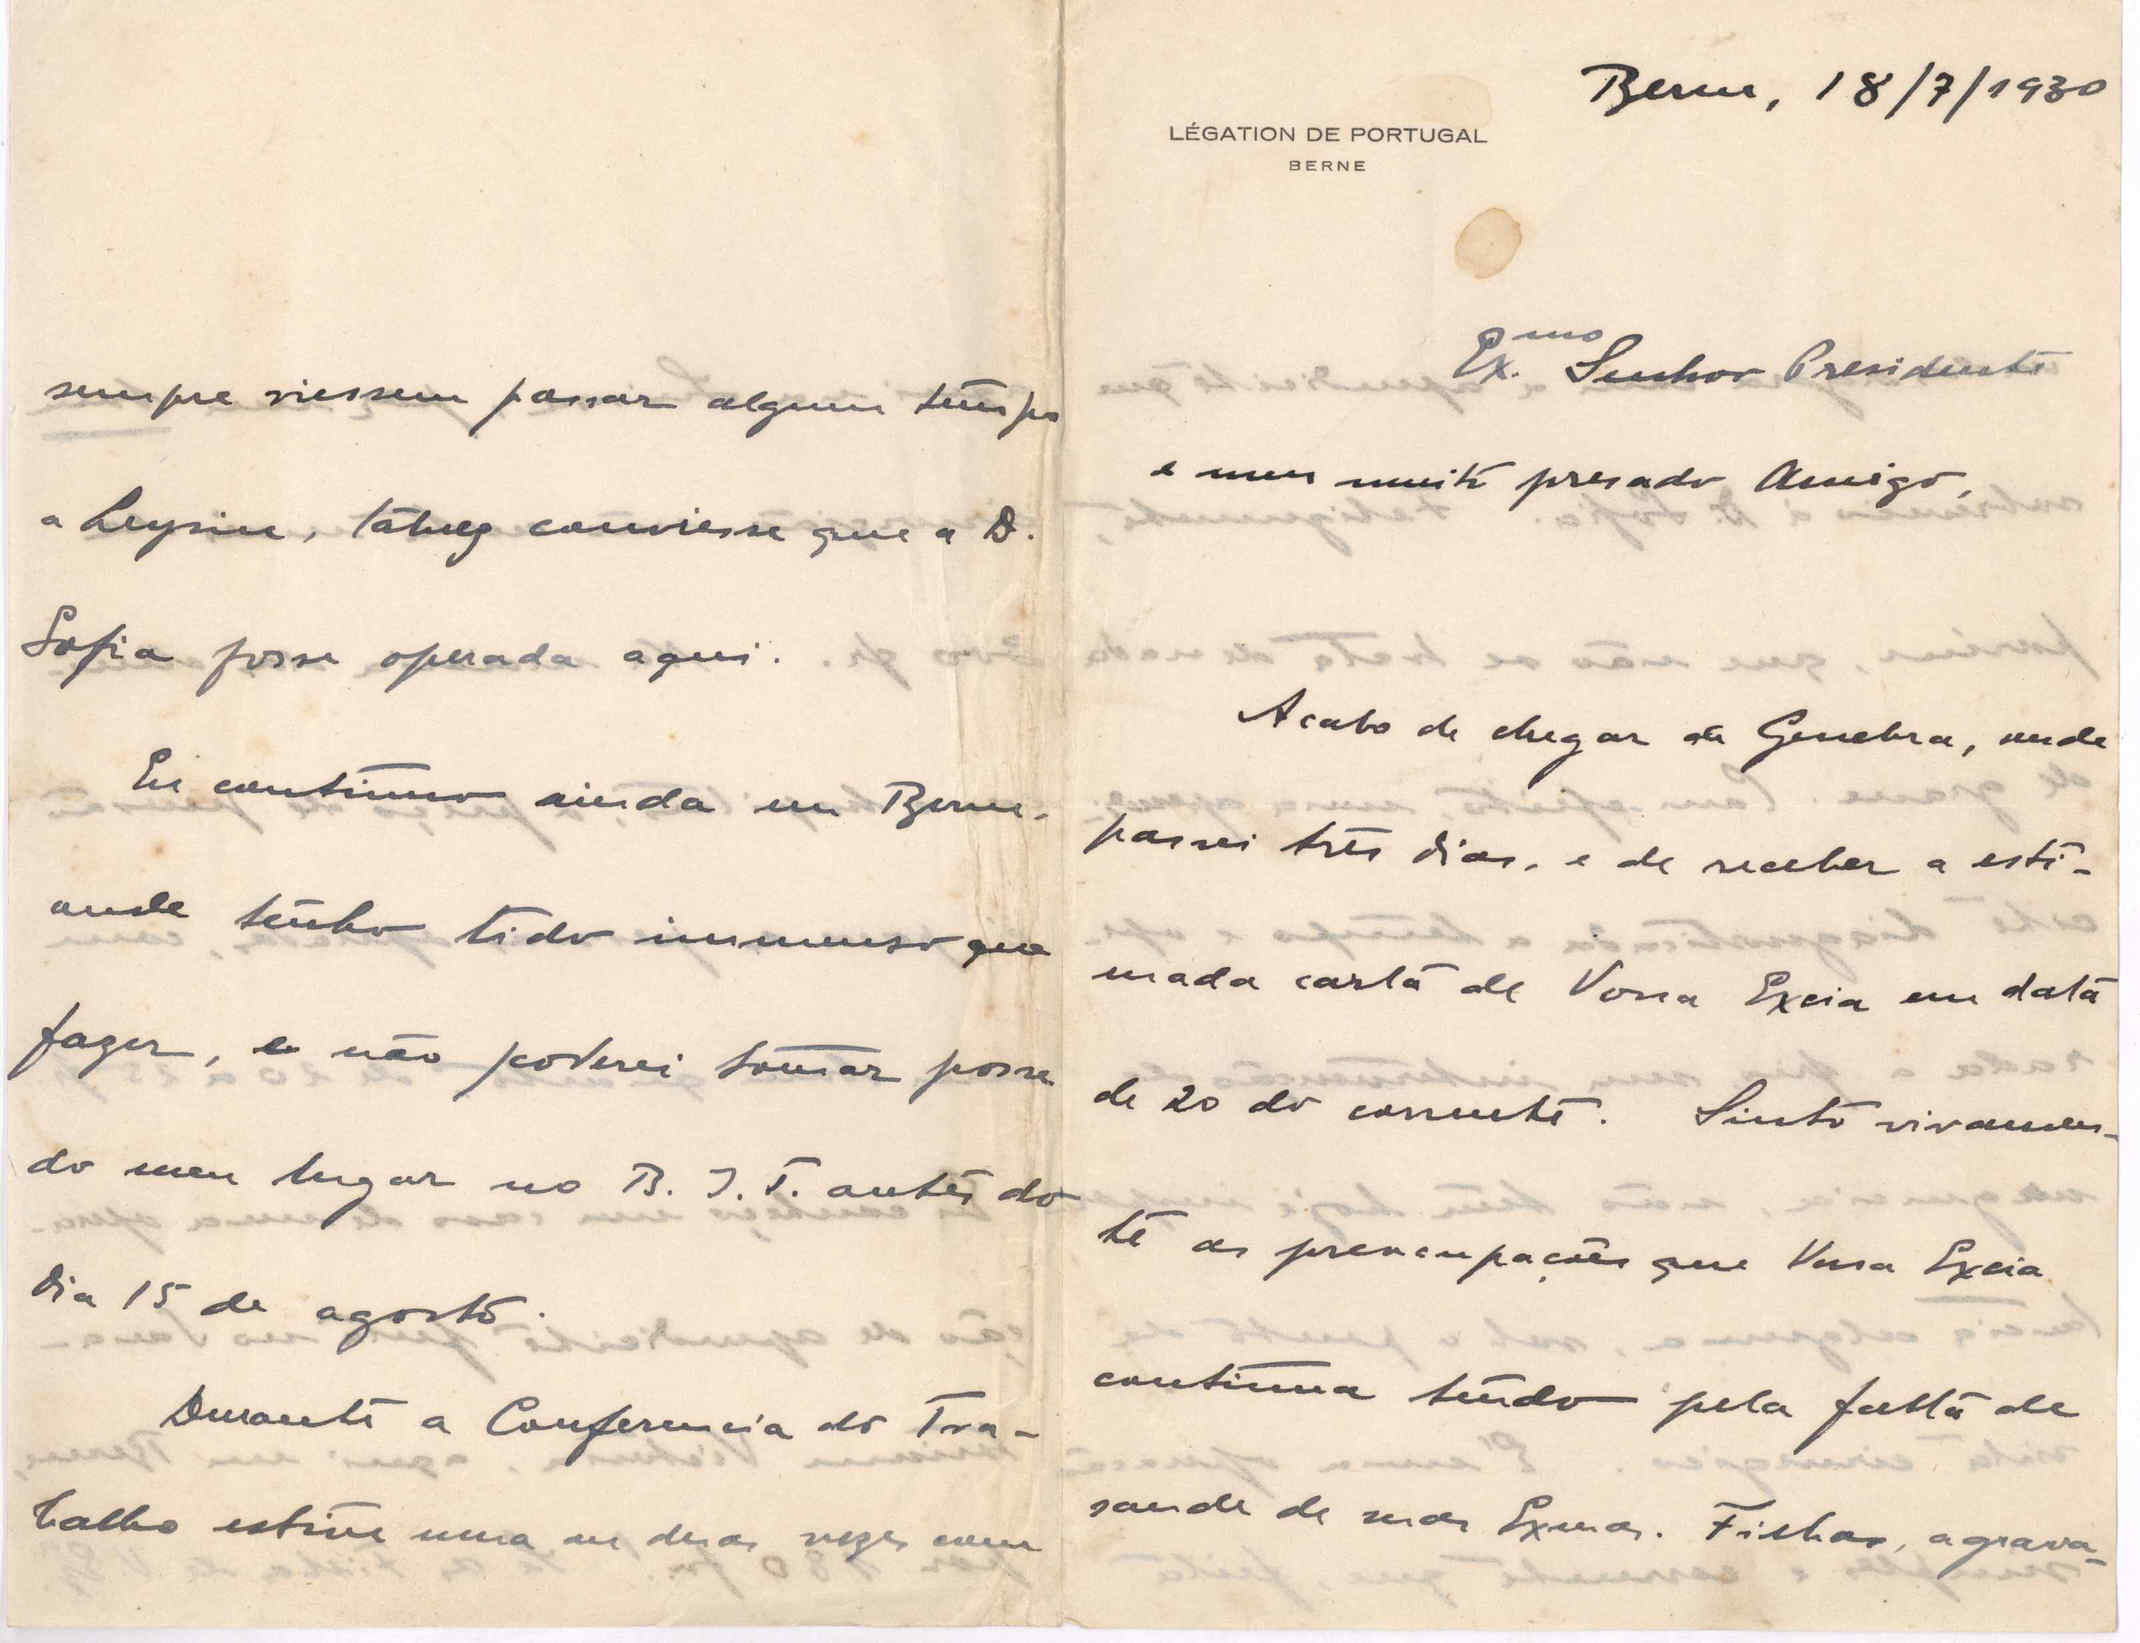 Berne, 18/7/1930
LÉGATION DE PORTUGAL
BERNE
Exmo. Senhor Presidente
e meu muito presado Amigo,
Acabo de chegar de Genebra, onde
passei três dias, e de receber a esti-
mada carta de Vossa Excia em data
de 20 do corrente. Sinto vivamen-
te as preocupações que Vossa Excia
continua tendo pela falta de
saude de suas Exmas. Filhas, agrava-
sempre viessem passar algum tempo
a Leysin, talvez conviesse que a D.
Sofia fosse operada aqui.
Eu continuo ainda em Berne,
onde tenho tido immenso que
fazer, e não poderei tomar posse
do meu lugar no B. I. T. antes do
dia 15 de agosto.
Durante a Conferencia do Tra-
balho estive uma ou duas vezes com